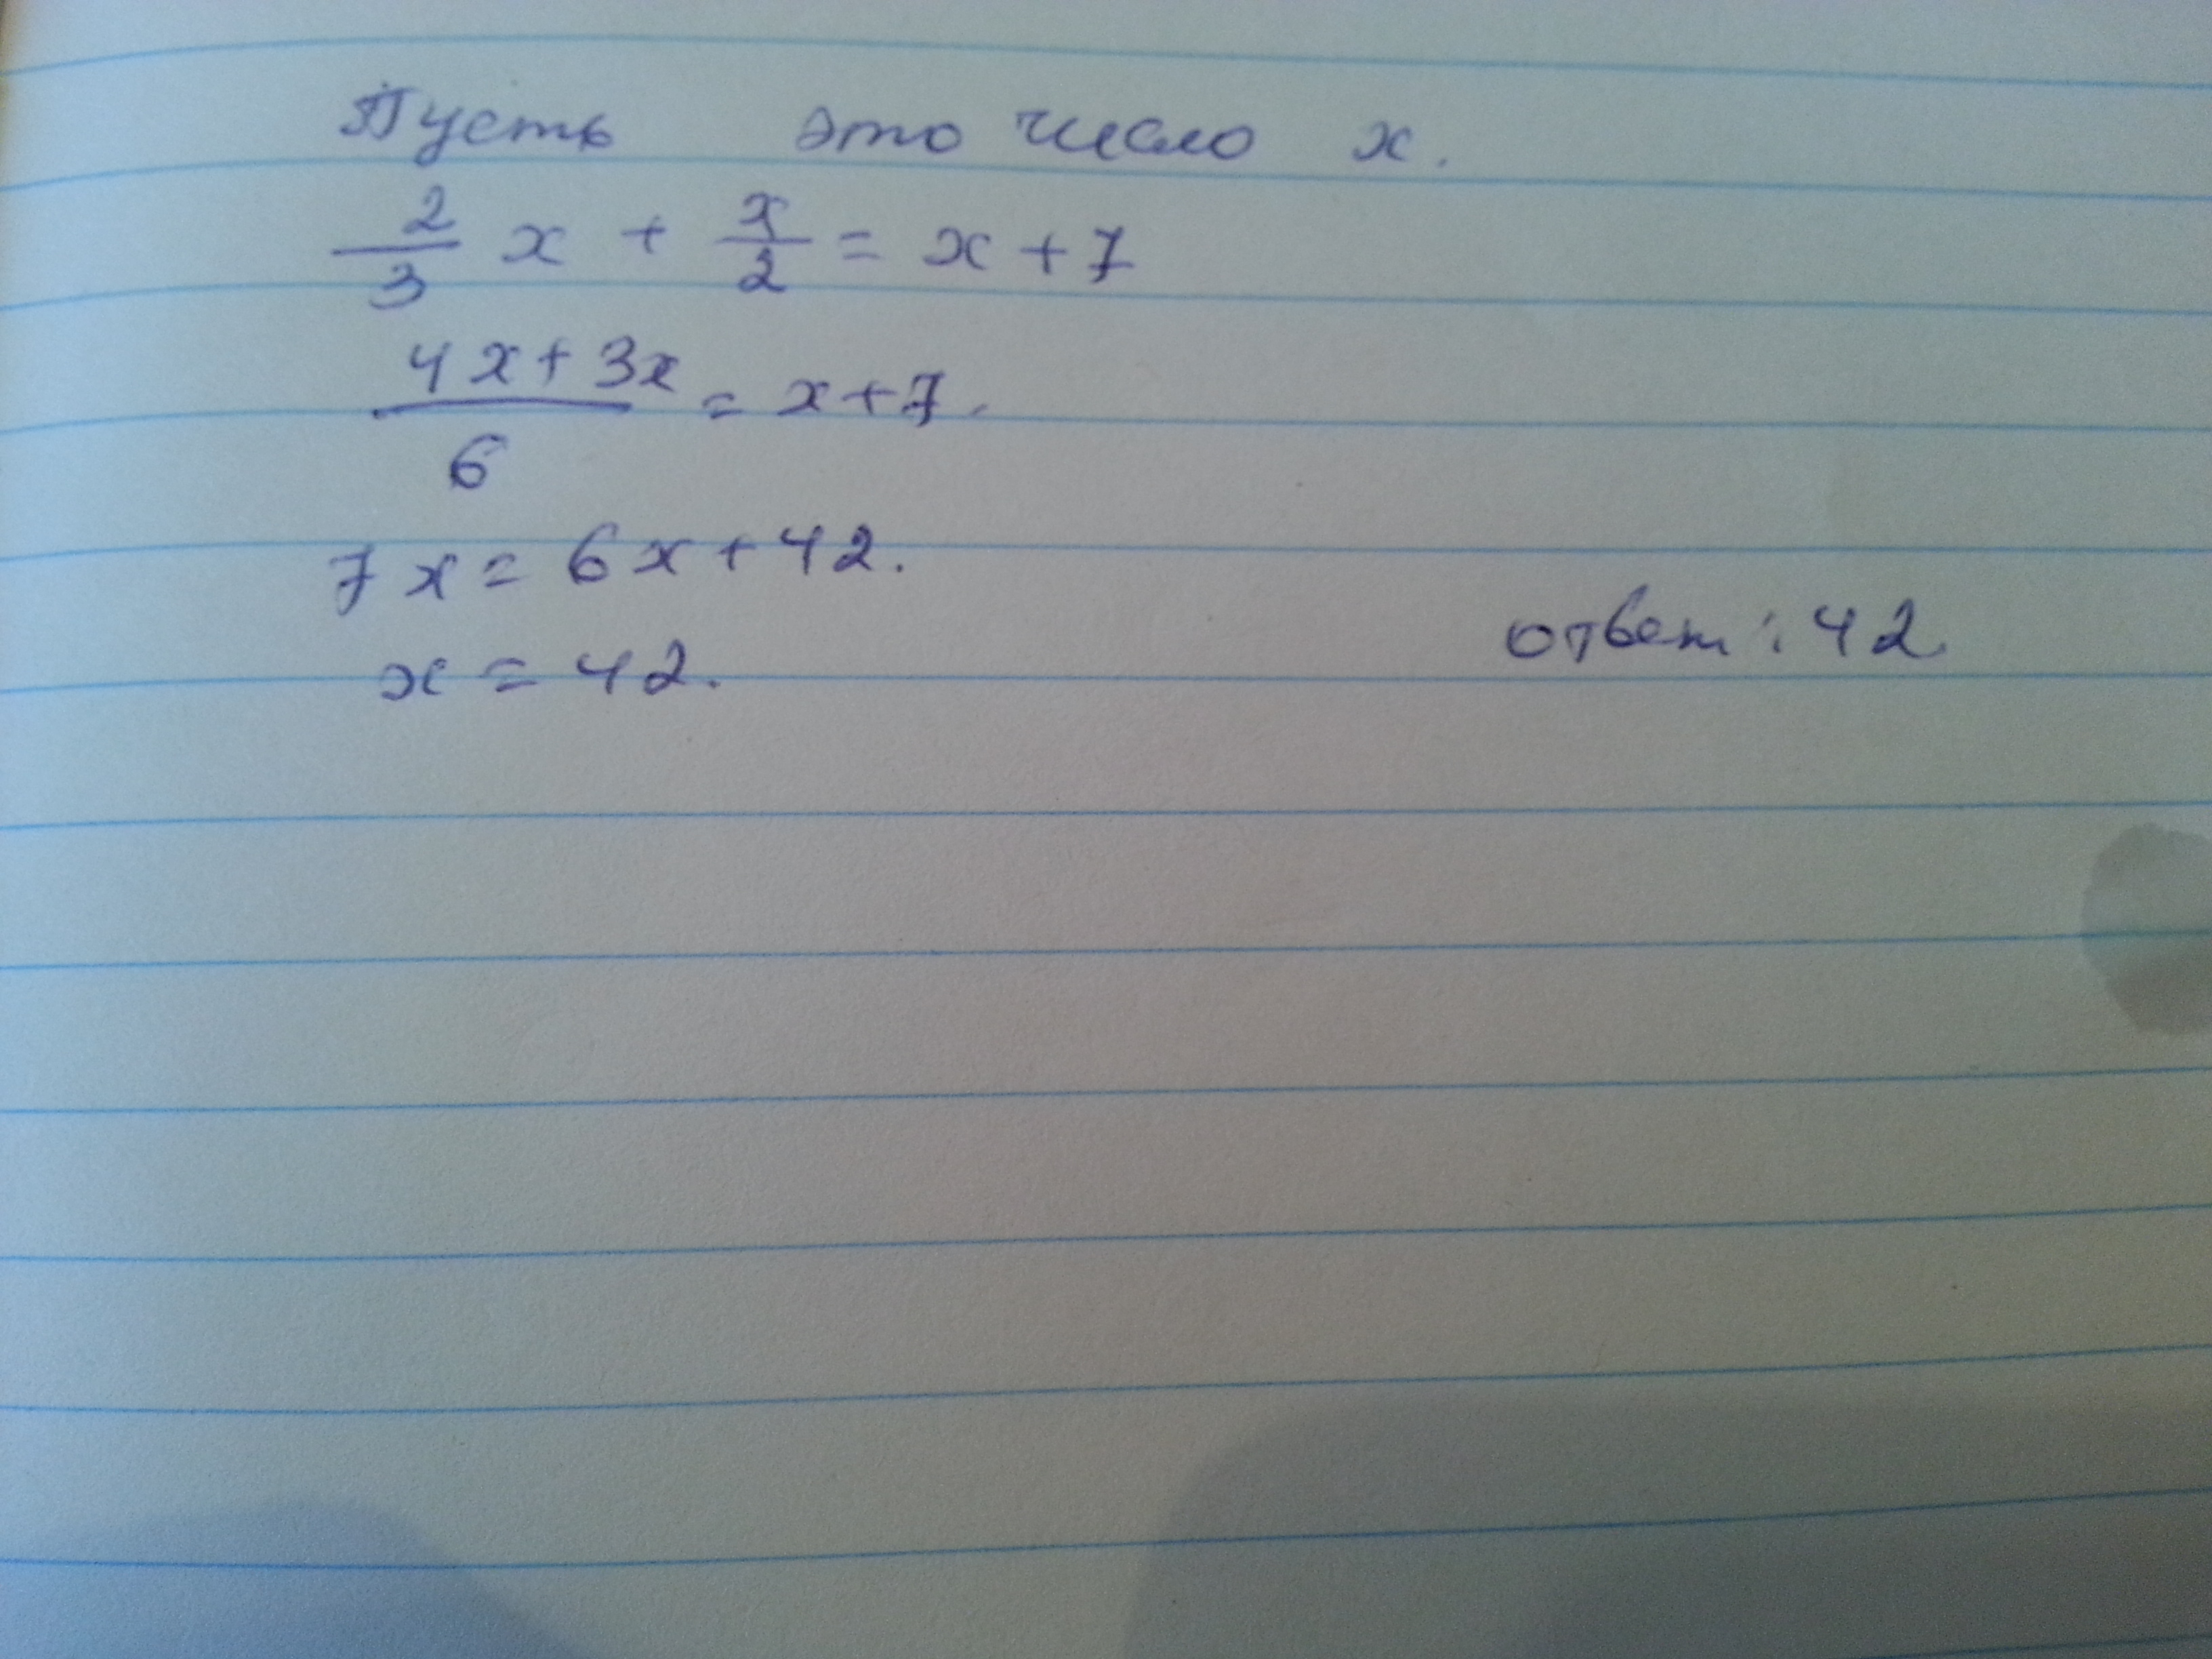 Пусть это число x.
2/3 x + x/2 = x + 7
(4x + 3x)/6 = x + 7.
7x = 6x + 42.
x = 42.
ответ: 42